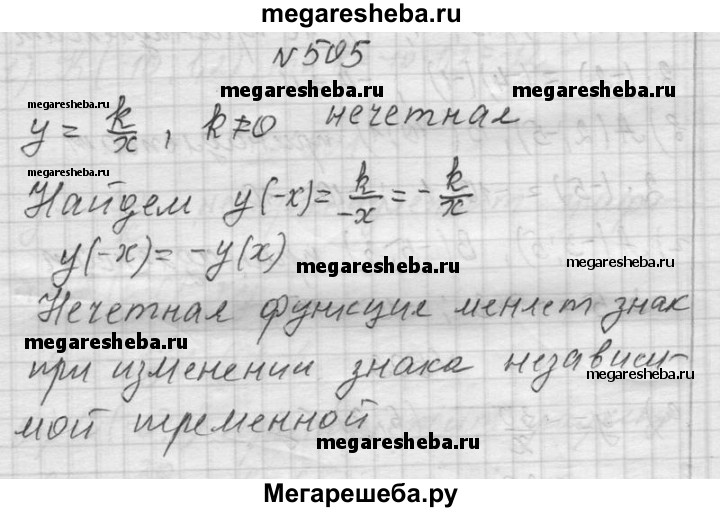 megaresheba.ru
N 505
megaresheba.ru megaresheba.ru
megaresheba.ru
y = k/x, k≠0 нечетная
megaresheba.ru
Найдем y(-x) = k/-x = - k/x
y(-x) = -y(x)
megaresheba.ru megaresheba.ru
Нечетная функция меняет знак
megaresheba.ru
при изменении знака независи-
megaresheba.ru
мой переменной
megaresheba.ru
Мегарешеба.ру